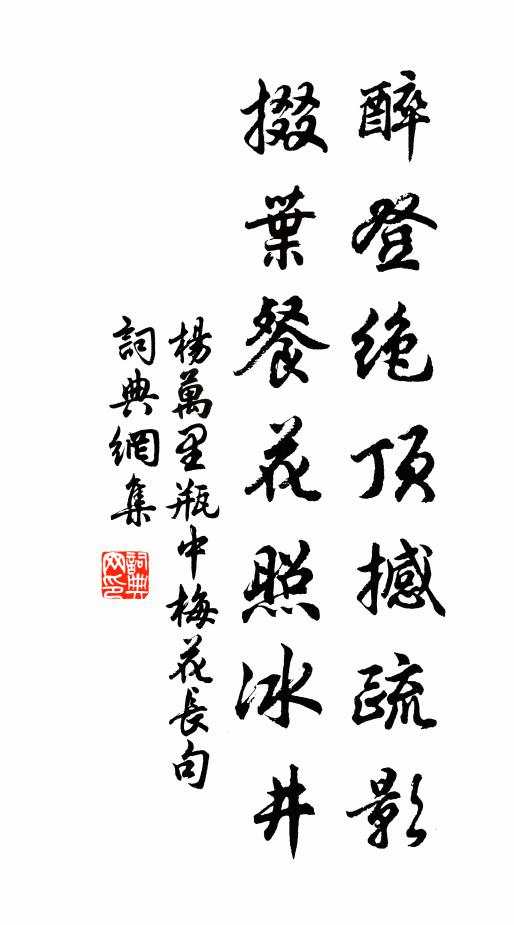 醉登绝顶撼疏影
掇葉餐花照冰井
楊萬里瓶中梅花長句
詞典網集
詞典网印